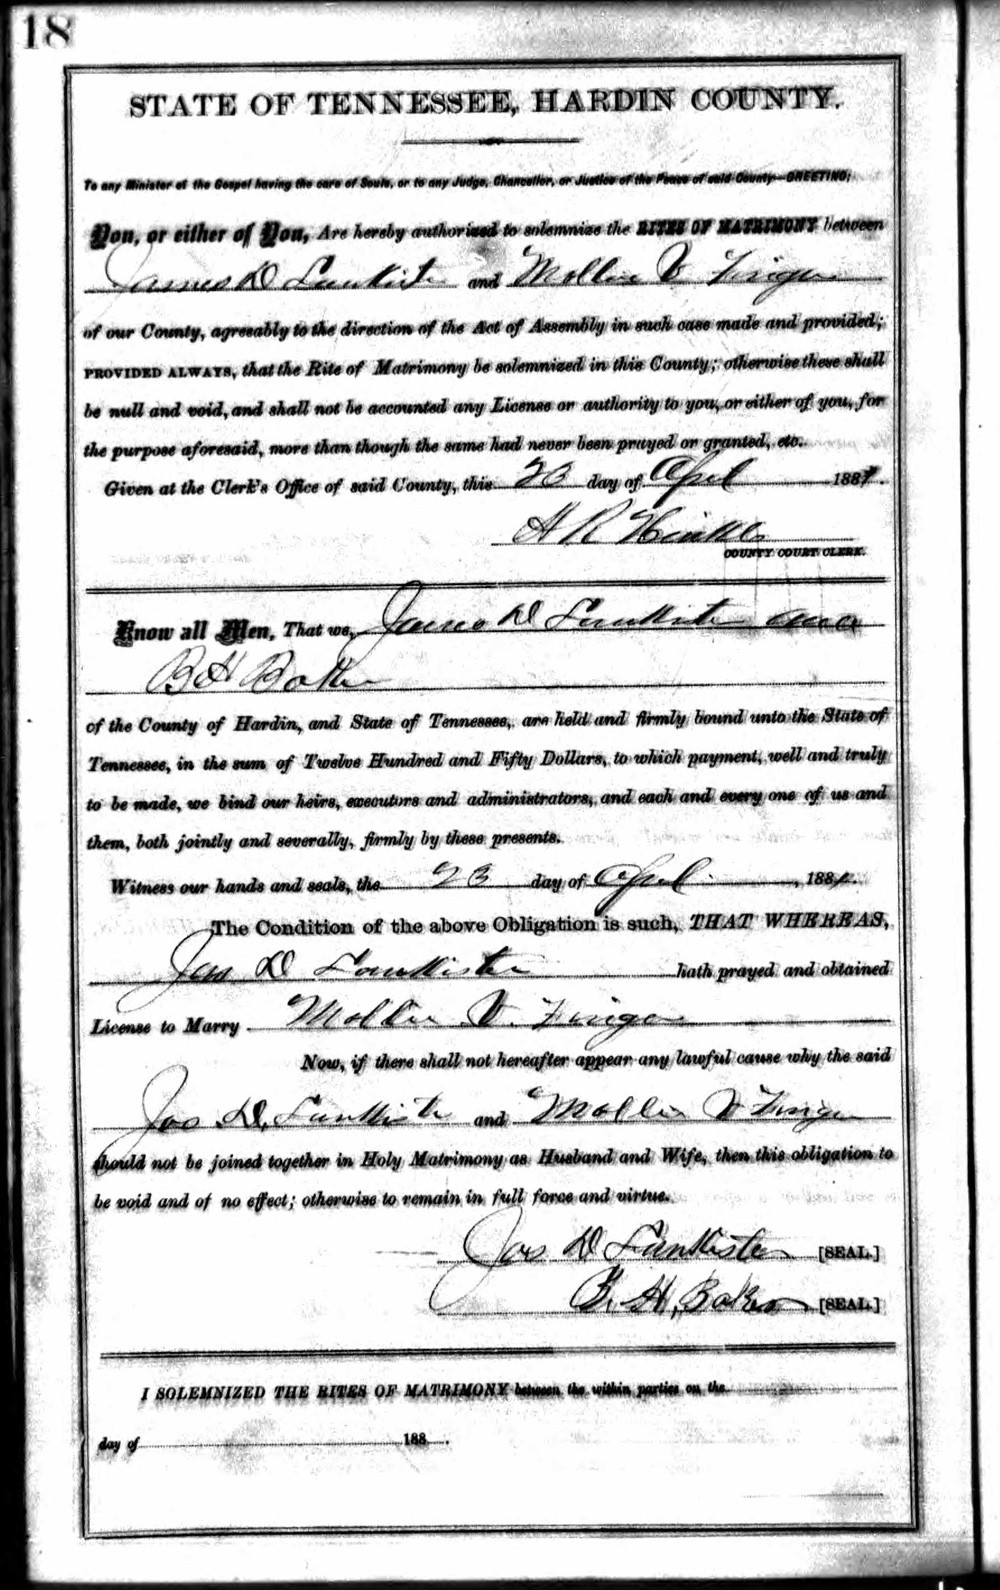 18
STATE OF TENNESSEE, HARDIN COUNTY.
To any Minister of the Gospel having the care of Souls, or to any Judge, Chancellor, or Justice of the Peace of said County—GREETING:
You, or either of You, Are hereby authorized to solemnize the RITES OF MATRIMONY between
James D and Mollie V
of our County, agreeably to the direction of the Act of Assembly in such case made and provided;
PROVIDED ALWAYS, that the Rite of Matrimony be solemnized in this County; otherwise these shall
be null and void, and shall not be accounted any License or authority to you, or either of you, for
the purpose aforesaid, more than though the same had never been prayed or granted, etc.
Given at the Clerk's Office of said County, this 23 day of April 188
A R Hinkle
COUNTY COURT CLERK.
Know all Men, That we, James D and
B H Baker
of the County of Hardin, and State of Tennessee, are held and firmly bound unto the State of
Tennessee, in the sum of Twelve Hundred and Fifty Dollars, to which payment, well and truly
to be made, we bind our heirs, executors and administrators, and each and every one of us and
them, both jointly and severally, firmly by these presents.
Witness our hands and seals, the 23 day of April , 188
The Condition of the above Obligation is such, THAT WHEREAS,
Jas D hath prayed and obtained
License to Marry Mollie V.
Now, if there shall not hereafter appear any lawful cause why the said
Jas D. and Mollie V
should not be joined together in Holy Matrimony as Husband and Wife, then this obligation to
be void and of no effect; otherwise to remain in full force and virtue.
Jas D [SEAL.]
B. H. Baker [SEAL.]
I SOLEMNIZED THE RITES OF MATRIMONY between the within parties on the
day of 188 .